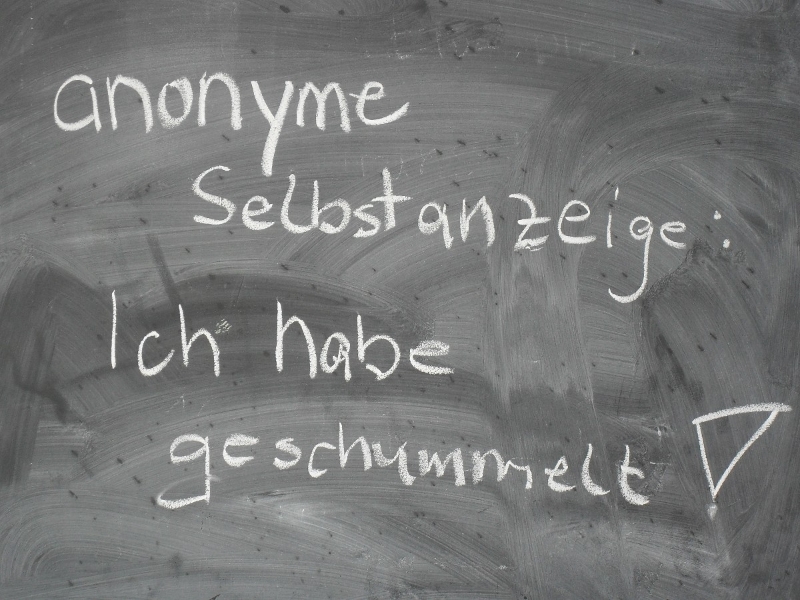 anonyme
Selbstanzeige:
Ich habe
geschummelt!